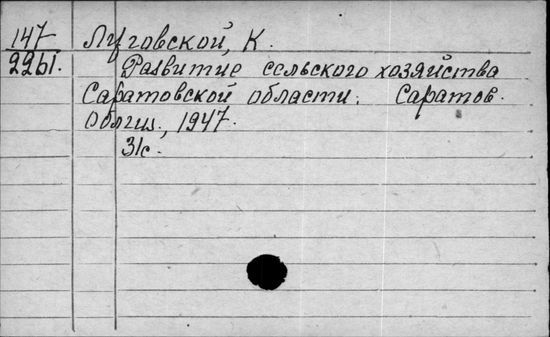 147 Луговской, К.
2261. Развитие сельского хозяйства
Саратовской области. Саратов.
Облгиз, 1947.
31с.